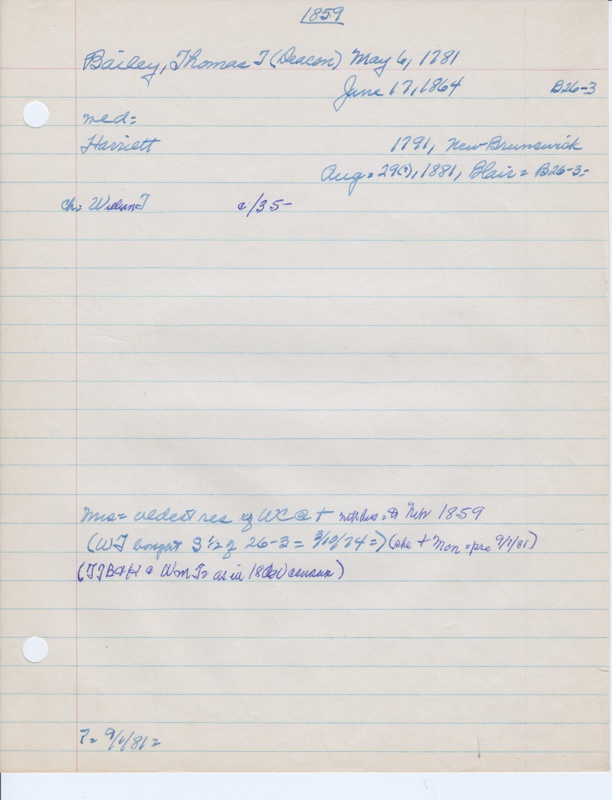 1859
Bailey, Thomas T (Deacon) May 6, 1781
June 17, 1864 B26-3
med=
Harriett 1791, New Brunswick
Aug. 29(?), 1881, Blair = B26-3=
ch= William T c/35-
Mrs= oldest res of WC@+ 1859
(WT bought S ½ of 26-3 = 3/10/74=) (she + Mon = pre 9/1/81)
(TTB+H @ Wm T= as in 1860 census)
7= 9/1/81=